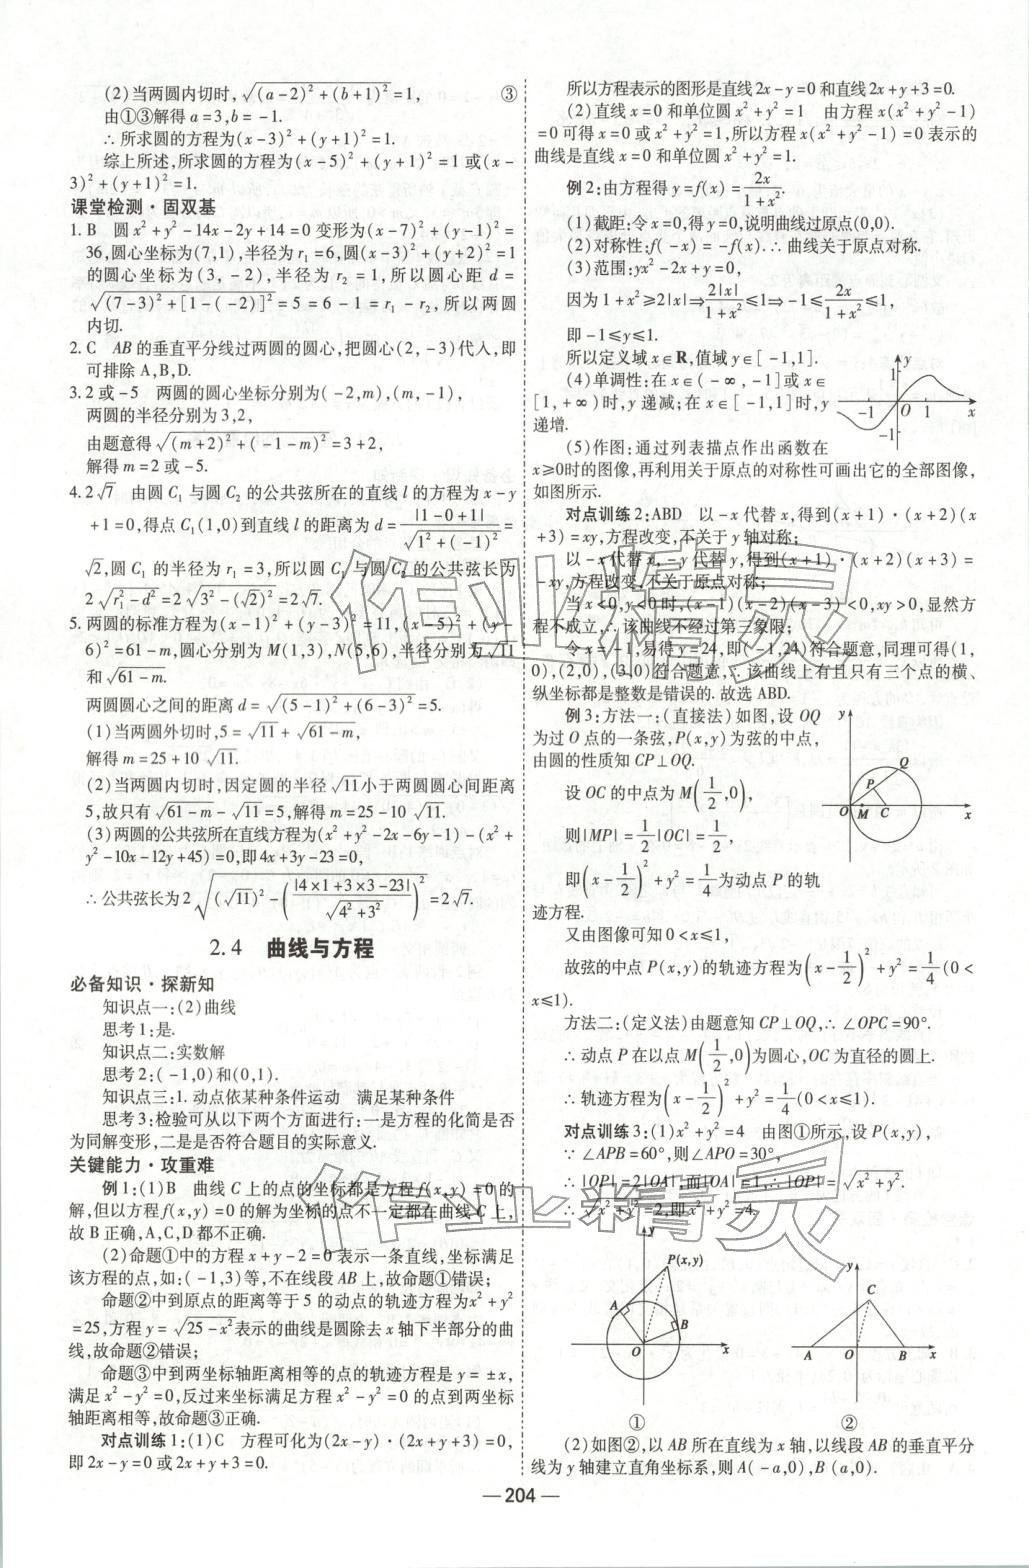 (2)当两圆内切时,√((a-2)²+(b+1)²)=1, ③
由①③解得a=3,b=-1.
∴所求圆的方程为(x-3)²+(y+1)²=1.
综上所述,所求圆的方程为(x-5)²+(y+1)²=1或(x-
3)²+(y+1)²=1.
课堂检测·固双基
1.B 圆x²+y²-14x-2y+14=0变形为(x-7)²+(y-1)²=
36,圆心坐标为(7,1),半径为r₁=6,圆(x-3)²+(y+2)²=1
的圆心坐标为(3,-2),半径为r₂=1,所以圆心距d=
√((7-3)²+[1-(-2)]²)=5=6-1=r₁-r₂,所以两圆
内切.
2.C AB的垂直平分线过两圆的圆心,把圆心(2,-3)代人,即
可排除A,B,D.
3.2或-5 两圆的圆心坐标分别为(-2,m),(m,-1),
两圆的半径分别为3,2,
由题意得√((m+2)²+(-1-m)²)=3+2,
解得m=2或-5.
4.2√7 由圆C₁与圆C₂的公共弦所在的直线l的方程为x-y
+1=0,得点C₁(1,0)到直线l的距离为d=|1-0+1|/√(1²+(-1)²)=
√2,圆C₁的半径为r₁=3,所以圆C₁与圆C₂的公共弦长为
2√(r₁²-d²)=2√(3²-(√2)²)=2√7.
5.两圆的标准方程为(x-1)²+(y-3)²=11,(x-5)²+(y-
6)²=61-m,圆心分别为M(1,3),N(5,6),半径分别为√11
和√(61-m).
两圆圆心之间的距离d=√((5-1)²+(6-3)²)=5.
(1)当两圆外切时,5=√11+√(61-m),
解得m=25+10√11.
(2)当两圆内切时,因定圆的半径√11小于两圆圆心间距离
5,故只有√(61-m)-√11=5,解得m=25-10√11.
(3)两圆的公共弦所在直线方程为(x²+y²-2x-6y-1)-(x²+
y²-10x-12y+45)=0,即4x+3y-23=0,
∴公共弦长为2√((√11)²-(|4×1+3×3-23|/√(4²+3²))²)=2√7.
2.4 曲线与方程
必备知识·探新知
知识点一:(2)曲线
思考1:是.
知识点二:实数解
思考2:(-1,0)和(0,1).
知识点三:1.动点依某种条件运动 满足某种条件
思考3:检验可从以下两个方面进行:一是方程的化简是否
为同解变形,二是是否符合题目的实际意义.
关键能力·攻重难
例1:(1)B 曲线C上的点的坐标都是方程f(x,y)=0的
解,但以方程f(x,y)=0的解为坐标的点不一定都在曲线C上,
故B正确,A,C,D都不正确.
(2)命题①中的方程x+y-2=0表示一条直线,坐标满足
该方程的点,如:(-1,3)等,不在线段AB上,故命题①错误;
命题②中到原点的距离等于5的动点的轨迹方程为x²+y²
=25,方程y=√(25-x²)表示的曲线是圆除去x轴下半部分的曲
线,故命题②错误;
命题③中到两坐标轴距离相等的点的轨迹方程是y=±x,
满足x²-y²=0,反过来坐标满足方程x²-y²=0的点到两坐标
轴距离相等,故命题③正确.
对点训练1:(1)C 方程可化为(2x-y)·(2x+y+3)=0,
即2x-y=0或2x+y+3=0.
所以方程表示的图形是直线2x-y=0和直线2x+y+3=0.
(2)直线x=0和单位圆x²+y²=1 由方程x(x²+y²-1)
=0可得x=0或x²+y²=1,所以方程x(x²+y²-1)=0表示的
曲线是直线x=0和单位圆x²+y²=1.
例2:由方程得y=f(x)=2x/(1+x²).
(1)截距:令x=0,得y=0,说明曲线过原点(0,0).
(2)对称性:f(-x)=-f(x).∴曲线关于原点对称.
(3)范围:yx²-2x+y=0,
因为1+x²≥2|x|⇒2|x|/(1+x²)≤1⇒-1≤2x/(1+x²)≤1,
即-1≤y≤1.
所以定义域x∈R,值域y∈[-1,1].
(4)单调性:在x∈(-∞,-1]或x∈
[1,+∞)时,y递减;在x∈[-1,1]时,y
递增.
y
1
-1 O 1 x
-1
(5)作图:通过列表描点作出函数在
x≥0时的图像,再利用关于原点的对称性可画出它的全部图像,
如图所示.
对点训练2:ABD 以-x代替x,得到(x+1)·(x+2)(x
+3)=xy,方程改变,不关于y轴对称;
以-x代替x,-y代替y,得到(x+1)·(x+2)(x+3)=
-xy,方程改变,不关于原点对称;
当x<0,y<0时,(x-1)(x-2)(x-3)<0,xy>0,显然方
程不成立,∴该曲线不经过第三象限;
令x=-1,易得y=24,即(-1,24)符合题意,同理可得(1,
0),(2,0),(3,0)符合题意,∴该曲线上有且只有三个点的横、
纵坐标都是整数是错误的.故选ABD.
例3:方法一:(直接法)如图,设OQ
为过O点的一条弦,P(x,y)为弦的中点,
由圆的性质知CP⊥OQ.
设OC的中点为M(1/2,0),
则|MP|=1/2|OC|=1/2,
即(x-1/2)²+y²=1/4为动点P的轨
迹方程.
y
Q
P
O M C x
又由图像可知0<x≤1,
故弦的中点P(x,y)的轨迹方程为(x-1/2)²+y²=1/4(0<
x≤1).
方法二:(定义法)由题意知CP⊥OQ,∴∠OPC=90°.
∴动点P在以点M(1/2,0)为圆心,OC为直径的圆上.
∴轨迹方程为(x-1/2)²+y²=1/4(0<x≤1).
对点训练3:(1)x²+y²=4 由图①所示,设P(x,y),
∵∠APB=60°,则∠APO=30°,
∴|OP|=2|OA|;而|OA|=1,∴|OP|=√(x²+y²).
∴√(x²+y²)=2,即x²+y²=4.
y
P(x,y)
A
B
O x
①
y
C
A O B x
②
(2)如图②,以AB所在直线为x轴,以线段AB的垂直平分
线为y轴建立直角坐标系,则A(-a,0),B(a,0).
— 204 —
作业精灵
作业精灵